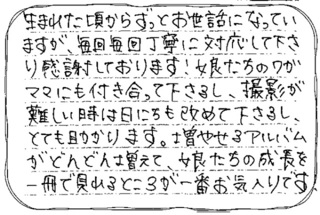 生まれた頃からずっとお世話になってい
ますが、毎回毎回丁寧に対応して下さ
り感謝しております!娘たちのワガ
ママにも付き合って下さるし、撮影が
難しい時は日にちも改めて下さるし、
とても助かります。増やせるアルバム
がどんどん増えて、娘たちの成長を
一冊で見れるところが一番お気入りです